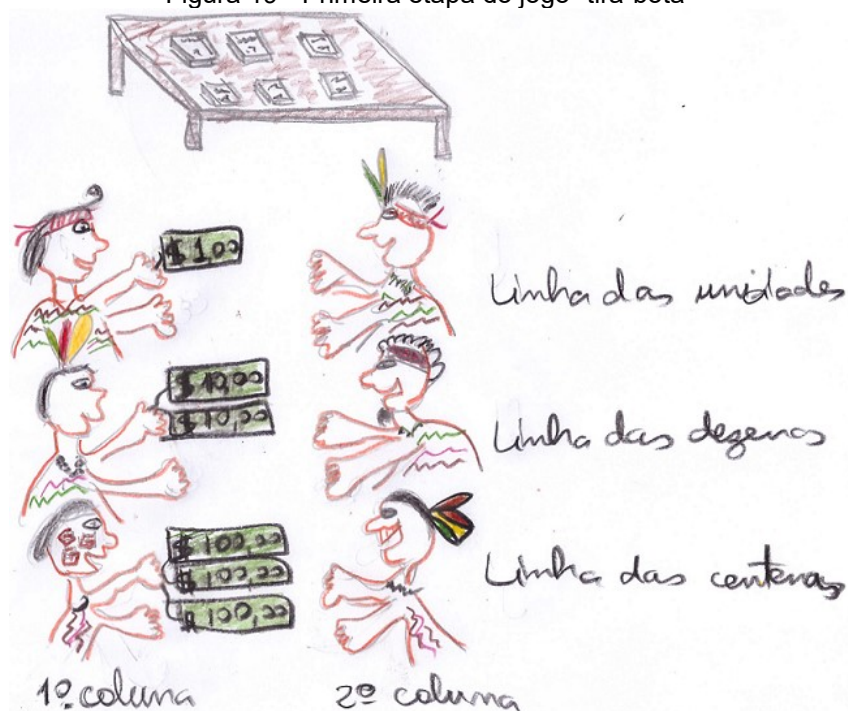 $ 1,00
Linha das unidades
$ 10,00
$ 10,00
Linha das dezenas
$ 100,00
$ 100,00
$ 100,00
Linha das centenas
1º coluna
2º coluna